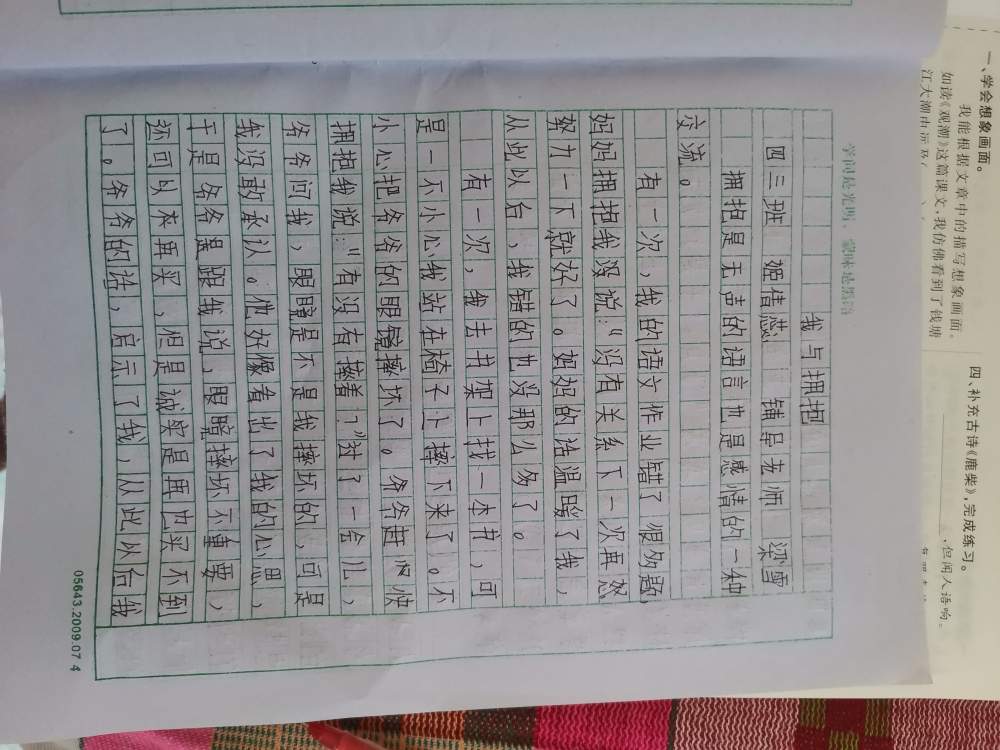 学问是光明，蒙昧是黑暗
我与拥抱
四三班 姬倩蕊 辅导老师 梁雪
拥抱是无声的语言也是感情的一种
交流。
有一次，我的语文作业错了很多题，
妈妈拥抱我没说：“没有关系下一次再努
努力一下就好了。妈妈的话温暖了我，
从此以后，我错的也没那么多了。
有一次，我去书架上找一本书，可
是一不小心我站在椅子上摔下来了。不
小心把爷爷的眼镜摔坏了。爷爷赶
快
拥抱我说：“有没有摔着？”对了一会儿，
爷爷问我，眼睛是不是我摔坏的，可是
我没敢承认。他好像看出了我的心思，
于是爷爷是跟我说，眼睛摔坏不重要，
还可以再买，但是诚实是再也买不到
了。爷爷的话，启示了我，从此以后我
05643.2009.07 4
一、学会想象画面。
我能根据文章中的描写想象画面。
如读《观潮》这篇课文，我仿佛看到了钱塘
四、补充古诗《鹿柴》，完成练习。
，但闻人语响。